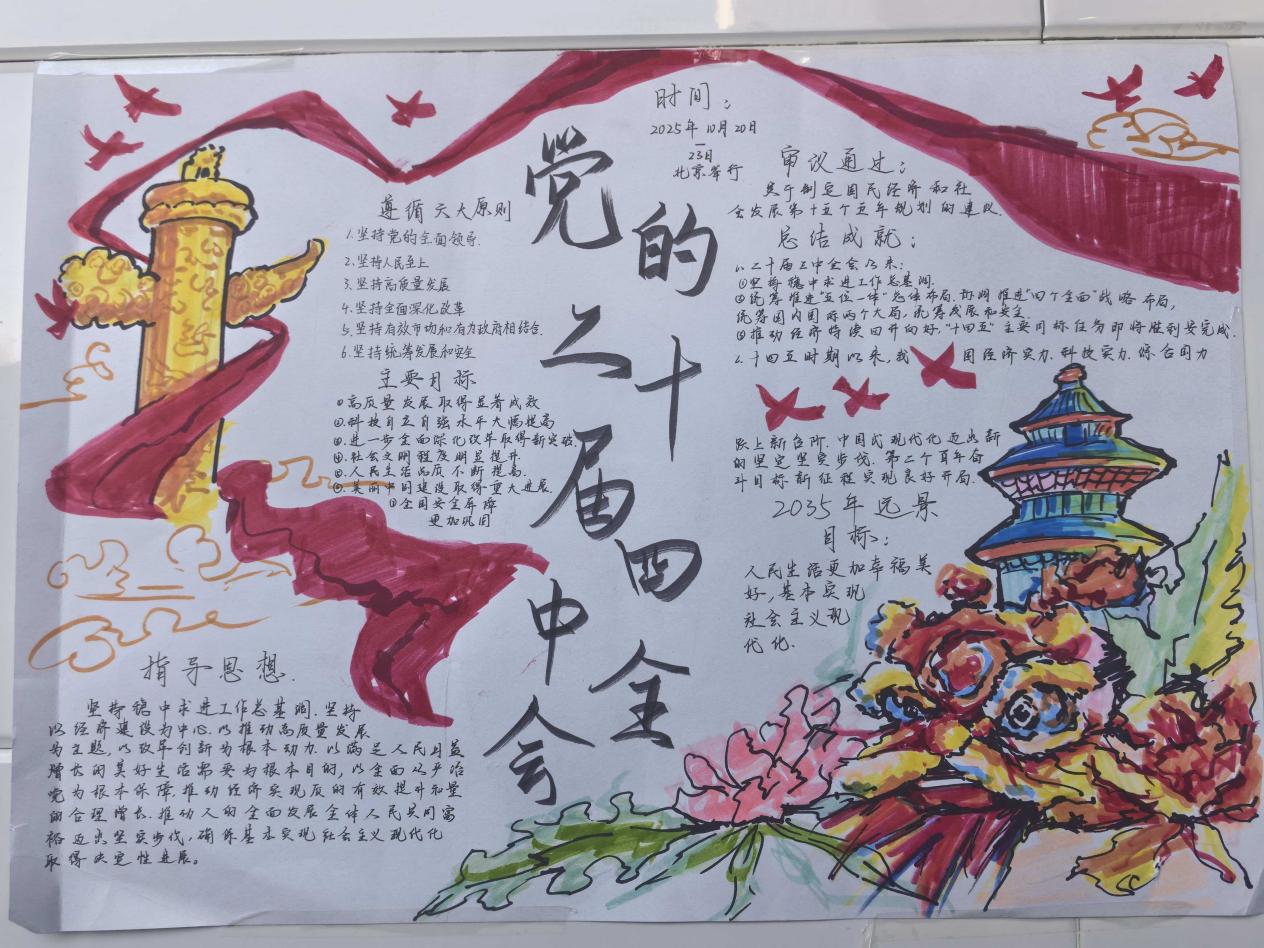 党的二十届四中全会
时间:
2025年10月20日
—
23日
北京举行
遵循六大原则
1.坚持党的全面领导.
2.坚持人民至上
3.坚持高质量发展
4.坚持全面深化改革
5.坚持有效市场和有为政府相结合.
6.坚持统筹发展和安全
主要目标
①高质量发展取得显著成效
②.科技自立自强水平大幅提高
③.进一步全面深化改革取得新突破.
④.社会文明程度明显提升.
⑤.人民生活品质不断提高.
⑥.美丽中国建设取得重大进展.
⑦全国安全屏障
更加巩固
指导思想.
坚持稳中求进工作总基调.坚持
以经济建设为中心.以推动高质量发展
为主题,以改革创新为根本动力.以满足人民日益
增长的美好生活需要为根本目的,以全面从严治
党为根本保障.推动经济实现质的有效提升和量
的合理增长.推动人的全面发展全体人民共同富
裕迈出坚实步伐,确保基本实现社会主义现代化
取得决定性进展。
审议通过:
关于制定国民经济和社
会发展第十五个五年规划的建议.
总结成就:
1.二十届三中全会以来:
①坚持稳中求进工作总基调.
②统筹推进"五位一体"总体布局.协调推进"四个全面"战略布局,
统筹国内国际两个大局,统筹发展和安全.
③推动经济持续回升向好,"十四五"主要目标任务即将胜利安完成.
2.十四五时期以来,我国经济实力.科技实力.综合国力
跃上新台阶.中国式现代化迈出新
的坚定坚实步伐.第二个百年奋
斗目标新征程实现良好开局.
2035年远景
目标:
人民生活更加幸福美
好,基本实现
社会主义现
代化.